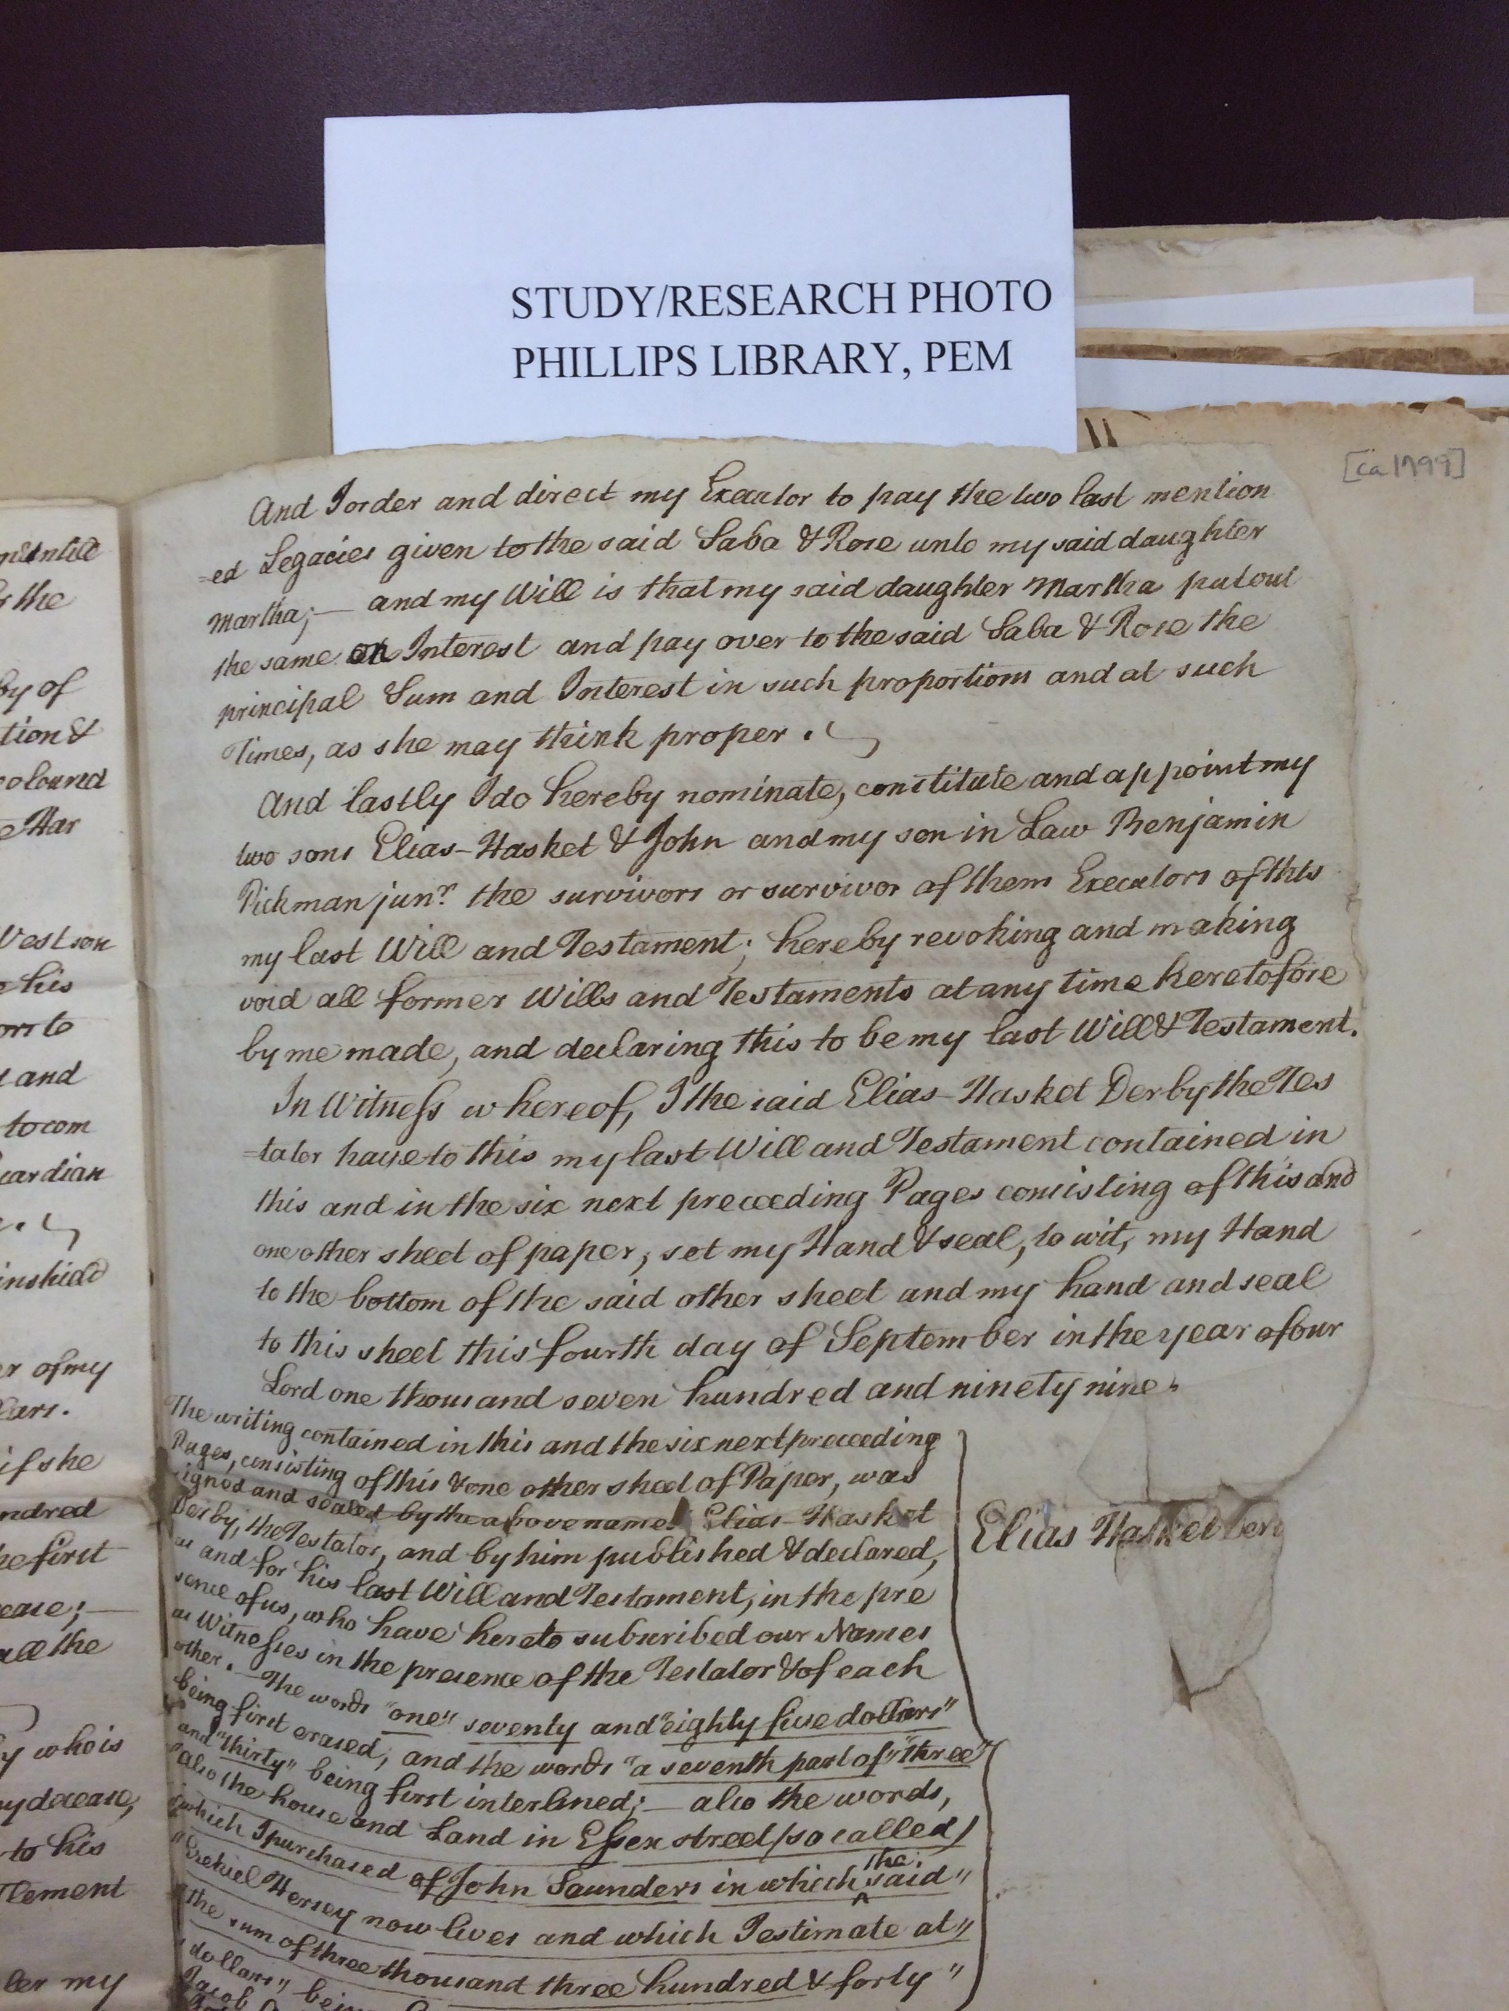 STUDY/RESEARCH PHOTO
PHILLIPS LIBRARY, PEM
[ca 1799]
And I order and direct my Executor to pay the two last mention
=ed Legacies given to the said Saba & Rose unto my said daughter
Martha; — and my Will is that my said daughter Martha put out
the same on Interest and pay over to the said Saba & Rose the
principal Sum and Interest in such proportions and at such
Times, as she may think proper.
And lastly I do hereby nominate, constitute and appoint my
two sons Elias-Hasket & John and my son in Law Benjamin
Pickman junr. the survivors or survivor of them Executors of this
my last Will and Testament; hereby revoking and making
void all former Wills and Testaments at any time heretofore
by me made, and declaring this to be my last Will & Testament.
In Witness whereof, I the said Elias-Hasket Derby the Tes
=tator have to this my last Will and Testament contained in
this and in the six next preceeding Pages consisting of this and
one other sheet of paper, set my Hand & seal, to wit, my Hand
to the bottom of the said other sheet and my hand and seal
to this sheet this fourth day of September in the year of our
Lord one thousand seven hundred and ninety nine.
The writing contained in this and the six next preceeding
Pages, consisting of this & one other sheet of Paper, was
signed and sealed by the above named Elias-Hasket
Derby, the Testator, and by him published & declared,
as and for his last Will and Testament, in the pre
sence of us, who have hereto subscribed our Names
as Witnesses in the presence of the Testator & of each
other. — The words "one" seventy and "eighty five dollars"
being first erased; and the words "a seventh part of" "three"
and "thirty" being first interlined; — also the words,
"also the house and Land in Essex street (so called)
"which I purchased of John Saunders in which the said"
"Ezekiel Hersey now lives and which I estimate at"
"the sum of three thousand three hundred & forty"
"dollars" being
Jacob
Elias Hasket Der
untill
the
by of
tion &
coloured
Har
West son
his
to
and
to com
uardian
of my
ears.
if she
ndred
the first
cease; —
all the
who is
my decease,
to his
tlement
my